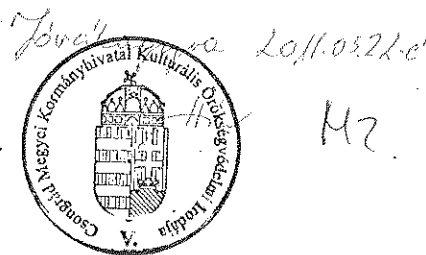 Jóváhagyva 2011.03.22-é
Csongrád Megyei Kormányhivatal Kulturális Örökségvédelmi Irodája
V.
M2.